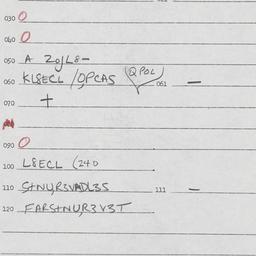 030 O
040 O
050 A 20gL8-
060 KL8ECL /QPCAS (QPOL) 061 —
070 +
090 O
100 L8ECL (240
110 S+NUR3VADL35 111 —
120 FARS+NUR3V3T